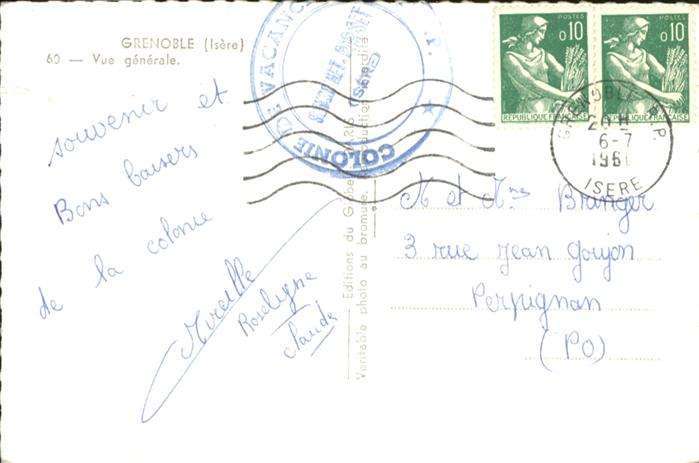 GRENOBLE (Isère)
60 — Vue générale.
souvenir et
Bons baisers
de la colonie
Mireille
Roselyne
Claude
COLONIE DE VACANC
P.
Editions du
Véritable photo au bromure.
POSTES
0,10
REPUBLIQUE FRANÇAISE
POSTES
0,10
GRENOBLE R.P.
20 H
6-7
1961
ISERE
M et Mme Branger
3 rue Jean Goujon
Perpignan
(PO)